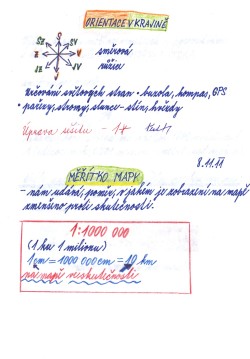 ORIENTACE V KRAJINĚ
S
SZ SV
Z V
JZ JV
J
směrová
růžice
Určování světových stran - buzola, kompas, GPS
- pařezy, stromy, slunce - stín, hvězdy
Úprava sešitu - 1*
8.11.
MĚŘÍTKO MAPY
- nám udává, poměr, v jakém je zobrazení na mapě
zmenšeno proti skutečnosti.
1:1000 000
(1 ku 1 milionu)
1 cm = 1000 000 cm = 10 km
na mapě ve skutečnosti